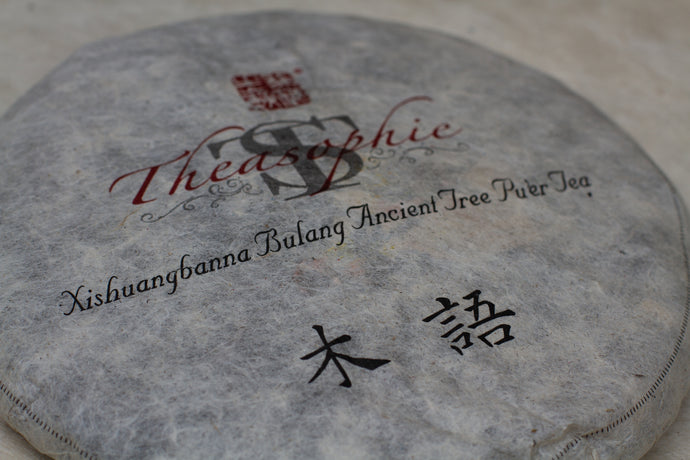 TS
Theasophie
Xishuangbanna Bulang Ancient Tree Pu'er Tea
木語